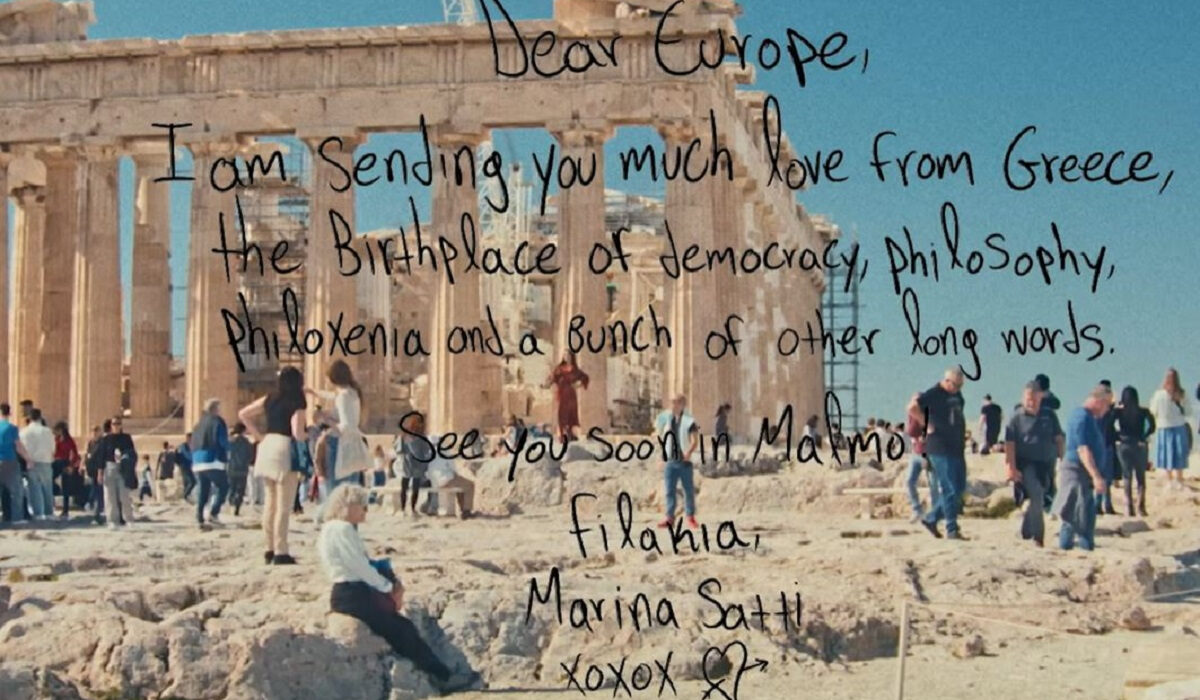 Dear Europe,
I am sending you much love from Greece,
the Birthplace of democracy, philosophy,
philoxenia and a Bunch of other long words.
See you soon in Malmo!
filakia,
Marina Satti
xoxox